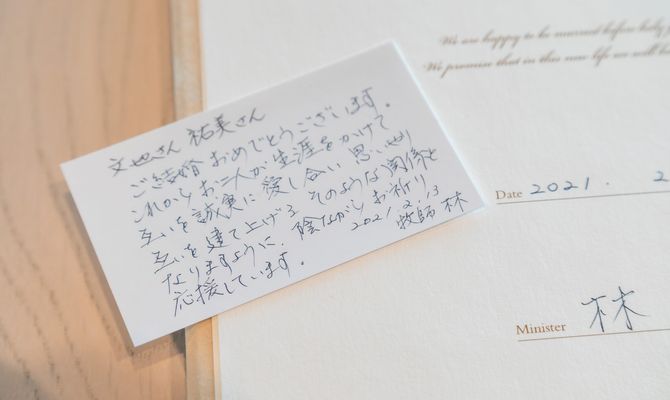 文也さん 祐美さん
ご結婚おめでとうございます。
これからお二人が生涯をかけて
互いを誠実に愛し合い 思いやり
互いを建て上げる そのような関係と
なりますように、陰ながらお祈り、
応援しています。
2021.2.13
牧師 林
We are happy to be married before
We promise that in this new life we will
Date 2021. 2
Minister 林